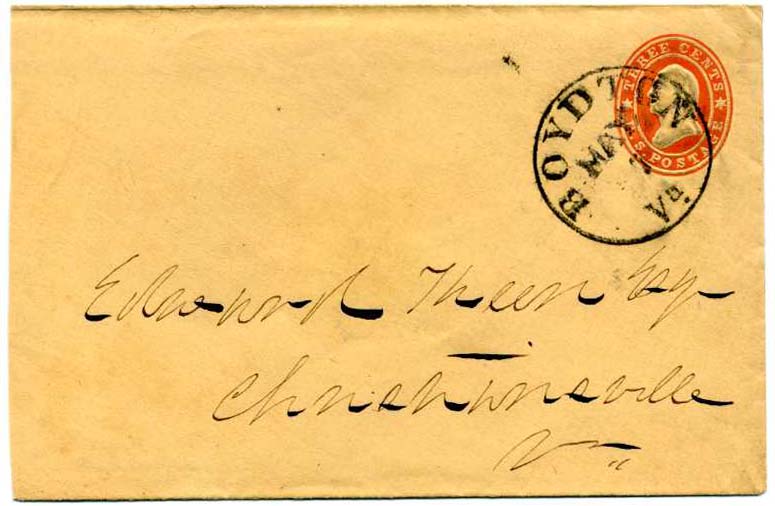 THREE CENTS
U.S. POSTAGE
BOYDTON
MAY
Va
Edward Esq
Va